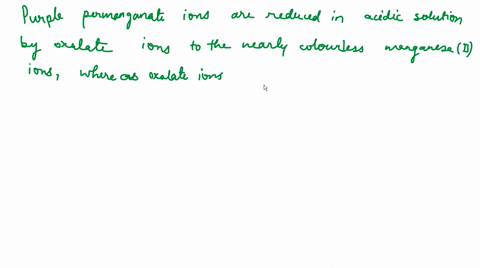 Purple permanganate ions are reduced in acidic solution
by oxalate ions to the nearly colourless manganese (II)
ions, where as oxalate ions